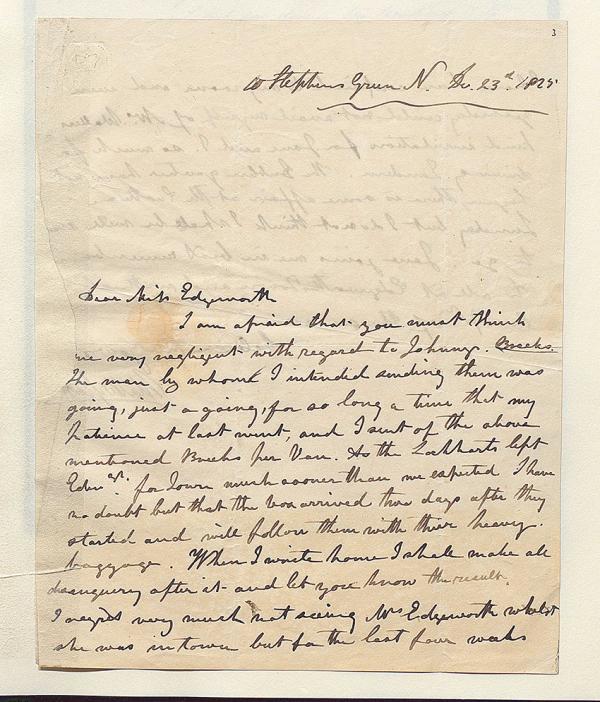 3
10 Stephens Green N. Dec. 23d. 1825
Dear Miss Edgeworth
I am afraid that you must think
me very negligent with regard to Johnny. Breeks.
The man by whom I intended sending them was
going, just a going, for so long a time that my
patience at last went, and I sent of the above
mentioned Breeks per Van. As the Lockharts left
Edinr. for Town much sooner than we expected I have
no doubt but that the box arrived two days after they
started and will follow them with their heavy.
baggage. When I write home I shall make all
enquery after it and let you know the result.
I regret very much not seeing Mrs Edgeworth whilst
she was in town but for the last four weeks